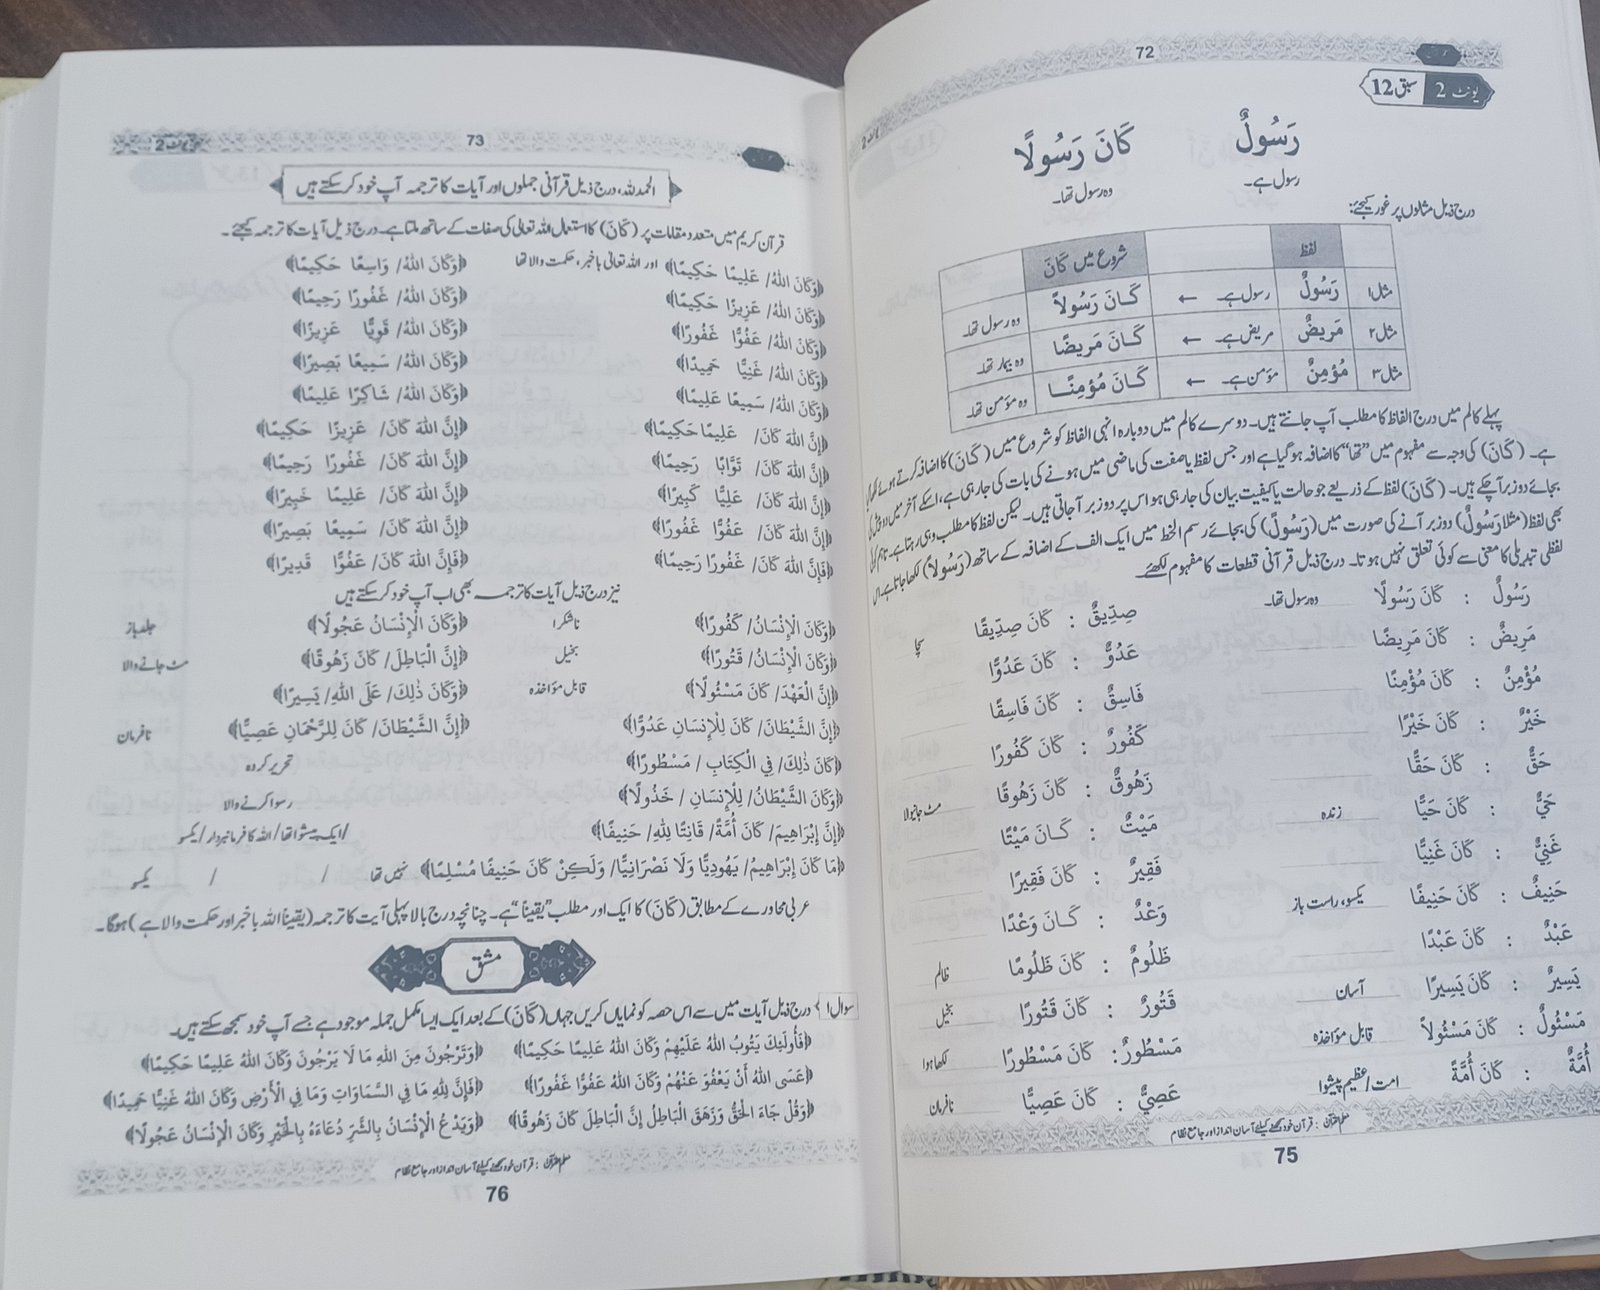 72
یونٹ 2 سبق 12
رَسُولٌ كَانَ رَسُولًا
رسول ہے۔ وہ رسول تھا۔
درج ذیل مثالوں پر غور کیجئے:
لفظ شروع میں كَانَ
مثال۱ رَسُولٌ رسول ہے۔ ← كَانَ رَسُولاً وہ رسول تھا۔
مثال۲ مَرِيضٌ مریض ہے۔ ← كَانَ مَرِيضًا وہ بیمار تھا۔
مثال۳ مُؤْمِنٌ مؤمن ہے۔ ← كَانَ مُؤْمِنًا وہ مؤمن تھا۔
پہلے کالم میں درج الفاظ کا مطلب آپ جانتے ہیں۔ دوسرے کالم میں دوبارہ انہی الفاظ کو شروع میں (كَانَ) کا اضافہ کرتے ہوئے لکھا گیا
ہے۔ (كَانَ) کی وجہ سے مفہوم میں ”تھا“ کا اضافہ ہو گیا ہے اور جس لفظ یا صفت کی ماضی میں ہونے کی بات کی جا رہی ہے، اسکے آخر میں دو پیش کی
بجائے دو زبر آچکے ہیں۔ (كَانَ) لفظ کے ذریعے جو حالت یا کیفیت بیان کی جا رہی ہو اس پر دو زبر آجاتی ہیں۔ لیکن لفظ کا مطلب وہی رہتا ہے۔
بھی لفظ (مثلاً رَسُولٌ) دو زبر آنے کی صورت میں (رَسُولً) کی بجائے رسم الخط میں ایک الف کے اضافہ کے ساتھ (رَسُولاً) لکھا جاتا ہے۔ اس
لفظی تبدیلی کا معنی سے کوئی تعلق نہیں ہوتا۔ درج ذیل قرآنی قطعات کا مفہوم لکھئے۔
رَسُولٌ : كَانَ رَسُولًا وہ رسول تھا۔ صِدِّيقٌ : كَانَ صِدِّيقًا سچا
مَرِيضٌ : كَانَ مَرِيضًا عَدُوٌّ : كَانَ عَدُوًّا
مُؤْمِنٌ : كَانَ مُؤْمِنًا فَاسِقٌ : كَانَ فَاسِقًا
خَيْرٌ : كَانَ خَيْرًا كَفُورٌ : كَانَ كَفُورًا
حَقٌّ : كَانَ حَقًّا زَهُوقٌ : كَانَ زَهُوقًا مٹ جانیوالا
حَيٌّ : كَانَ حَيًّا زندہ مَيْتٌ : كَانَ مَيْتًا
غَنِيٌّ : كَانَ غَنِيًّا فَقِيرٌ : كَانَ فَقِيرًا
حَنِيفٌ : كَانَ حَنِيفًا یکسو، راست باز وَعْدٌ : كَانَ وَعْدًا
عَبْدٌ : كَانَ عَبْدًا ظَلُومٌ : كَانَ ظَلُومًا ظالم
يَسِيرٌ : كَانَ يَسِيرًا آسان قَتُورٌ : كَانَ قَتُورًا بخیل
مَسْئُولٌ : كَانَ مَسْئُولاً قابل مؤاخذہ مَسْطُورٌ : كَانَ مَسْطُورًا لکھا ہوا
أُمَّةٌ : كَانَ أُمَّةً امت/عظیم پیشوا عَصِيٌّ : كَانَ عَصِيًّا نافرمان
معلم القرآن : قرآن خود سمجھنے کیلئے آسان انداز اور جامع نظام
75
73 یونٹ 2
الحمدللہ، درج ذیل قرآنی جملوں اور آیات کا ترجمہ آپ خود کر سکتے ہیں
قرآن کریم میں متعدد مقامات پر (كَانَ) کا استعمال اللہ تعالیٰ کی صفات کے ساتھ ملتا ہے۔ درج ذیل آیات کا ترجمہ کیجئے۔
﴿وَكَانَ اللهُ/ عَلِيمًا حَكِيمًا﴾ اور اللہ تعالیٰ باخبر، حکمت والا تھا ﴿وَكَانَ اللهُ/ وَاسِعًا حَكِيمًا﴾
﴿وَكَانَ اللهُ/ عَزِيزًا حَكِيمًا﴾ ﴿وَكَانَ اللهُ/ غَفُورًا رَحِيمًا﴾
﴿وَكَانَ اللهُ/ عَفُوًّا غَفُورًا﴾ ﴿وَكَانَ اللهُ/ قَوِيًّا عَزِيزًا﴾
﴿وَكَانَ اللهُ/ غَنِيًّا حَمِيدًا﴾ ﴿وَكَانَ اللهُ/ سَمِيعًا بَصِيرًا﴾
﴿وَكَانَ اللهُ/ سَمِيعًا عَلِيمًا﴾ ﴿وَكَانَ اللهُ/ شَاكِرًا عَلِيمًا﴾
﴿إِنَّ اللهَ كَانَ/ عَلِيمًا حَكِيمًا﴾ ﴿إِنَّ اللهَ كَانَ/ عَزِيزًا حَكِيمًا﴾
﴿إِنَّ اللهَ كَانَ/ تَوَّابًا رَحِيمًا﴾ ﴿إِنَّ اللهَ كَانَ/ غَفُورًا رَحِيمًا﴾
﴿إِنَّ اللهَ كَانَ/ عَلِيًّا كَبِيرًا﴾ ﴿إِنَّ اللهَ كَانَ/ عَلِيمًا خَبِيرًا﴾
﴿إِنَّ اللهَ كَانَ/ عَفُوًّا غَفُورًا﴾ ﴿إِنَّ اللهَ كَانَ/ سَمِيعًا بَصِيرًا﴾
﴿فَإِنَّ اللهَ كَانَ/ غَفُورًا رَحِيمًا﴾ ﴿فَإِنَّ اللهَ كَانَ/ عَفُوًّا قَدِيرًا﴾
نیز درج ذیل آیات کا ترجمہ بھی اب آپ خود کر سکتے ہیں
﴿وَكَانَ الْإِنْسَانُ/ كَفُورًا﴾ ناشکرا ﴿وَكَانَ الْإِنْسَانُ عَجُولًا﴾ جلد باز
﴿وَكَانَ الْإِنْسَانُ/ قَتُورًا﴾ بخیل ﴿إِنَّ الْبَاطِلَ/ كَانَ زَهُوقًا﴾ مٹ جانے والا
﴿إِنَّ الْعَهْدَ/ كَانَ مَسْئُولًا﴾ قابل مؤاخذہ ﴿وَكَانَ ذٰلِكَ/ عَلَى اللهِ/ يَسِيرًا﴾
﴿إِنَّ الشَّيْطَانَ/ كَانَ لِلْإِنسَانِ عَدُوًّا﴾ ﴿إِنَّ الشَّيْطَانَ/ كَانَ لِلرَّحْمَانِ عَصِيًّا﴾ نافرمان
﴿كَانَ ذٰلِكَ/ فِي الْكِتَابِ / مَسْطُورًا﴾ تحریر کردہ
﴿وَكَانَ الشَّيْطَانُ/ لِلْإِنسَانِ / خَذُولًا﴾ رسوا کرنے والا
﴿إِنَّ إِبْرَاهِيمَ/ كَانَ أُمَّةً/ قَانِتًا لِلّٰهِ/ حَنِيفًا﴾ /ایک پیشوا تھا/ اللہ کا فرمانبردار/ یکسو
﴿مَا كَانَ إِبْرَاهِيمُ/ يَهُودِيًّا وَلَا نَصْرَانِيًّا/ وَلٰكِنْ كَانَ حَنِيفًا مُسْلِمًا﴾ نہیں تھا / / یکسو
عربی محاورے کے مطابق (كَانَ) کا ایک اور مطلب ”یقیناً“ ہے۔ چنانچہ درج بالا پہلی آیت کا ترجمہ (یقیناً اللہ باخبر اور حکمت والا ہے) ہوگا۔
مشق
سوال ۱ درج ذیل آیات میں سے اس حصہ کو نمایاں کریں جہاں (كَانَ) کے بعد ایک ایسا مکمل جملہ موجود ہے جسے آپ خود سمجھ سکتے ہیں۔
﴿فَأُولٰئِكَ يَتُوبُ اللهُ عَلَيْهِمْ وَكَانَ اللهُ عَلِيمًا حَكِيمًا﴾ ﴿وَتَرْجُونَ مِنَ اللهِ مَا لَا يَرْجُونَ وَكَانَ اللهُ عَلِيمًا حَكِيمًا﴾
﴿عَسَى اللهُ أَنْ يَعْفُوَ عَنْهُمْ وَكَانَ اللهُ عَفُوًّا غَفُورًا﴾ ﴿فَإِنَّ لِلّٰهِ مَا فِي السَّمَاوَاتِ وَمَا فِي الْأَرْضِ وَكَانَ اللهُ غَنِيًّا حَمِيدًا﴾
﴿وَقُلْ جَاءَ الْحَقُّ وَزَهَقَ الْبَاطِلُ إِنَّ الْبَاطِلَ كَانَ زَهُوقًا﴾ ﴿وَيَدْعُ الْإِنْسَانُ بِالشَّرِّ دُعَاءَهُ بِالْخَيْرِ وَكَانَ الْإِنْسَانُ عَجُولًا﴾
معلم القرآن : قرآن خود سمجھنے کیلئے آسان انداز اور جامع نظام
76